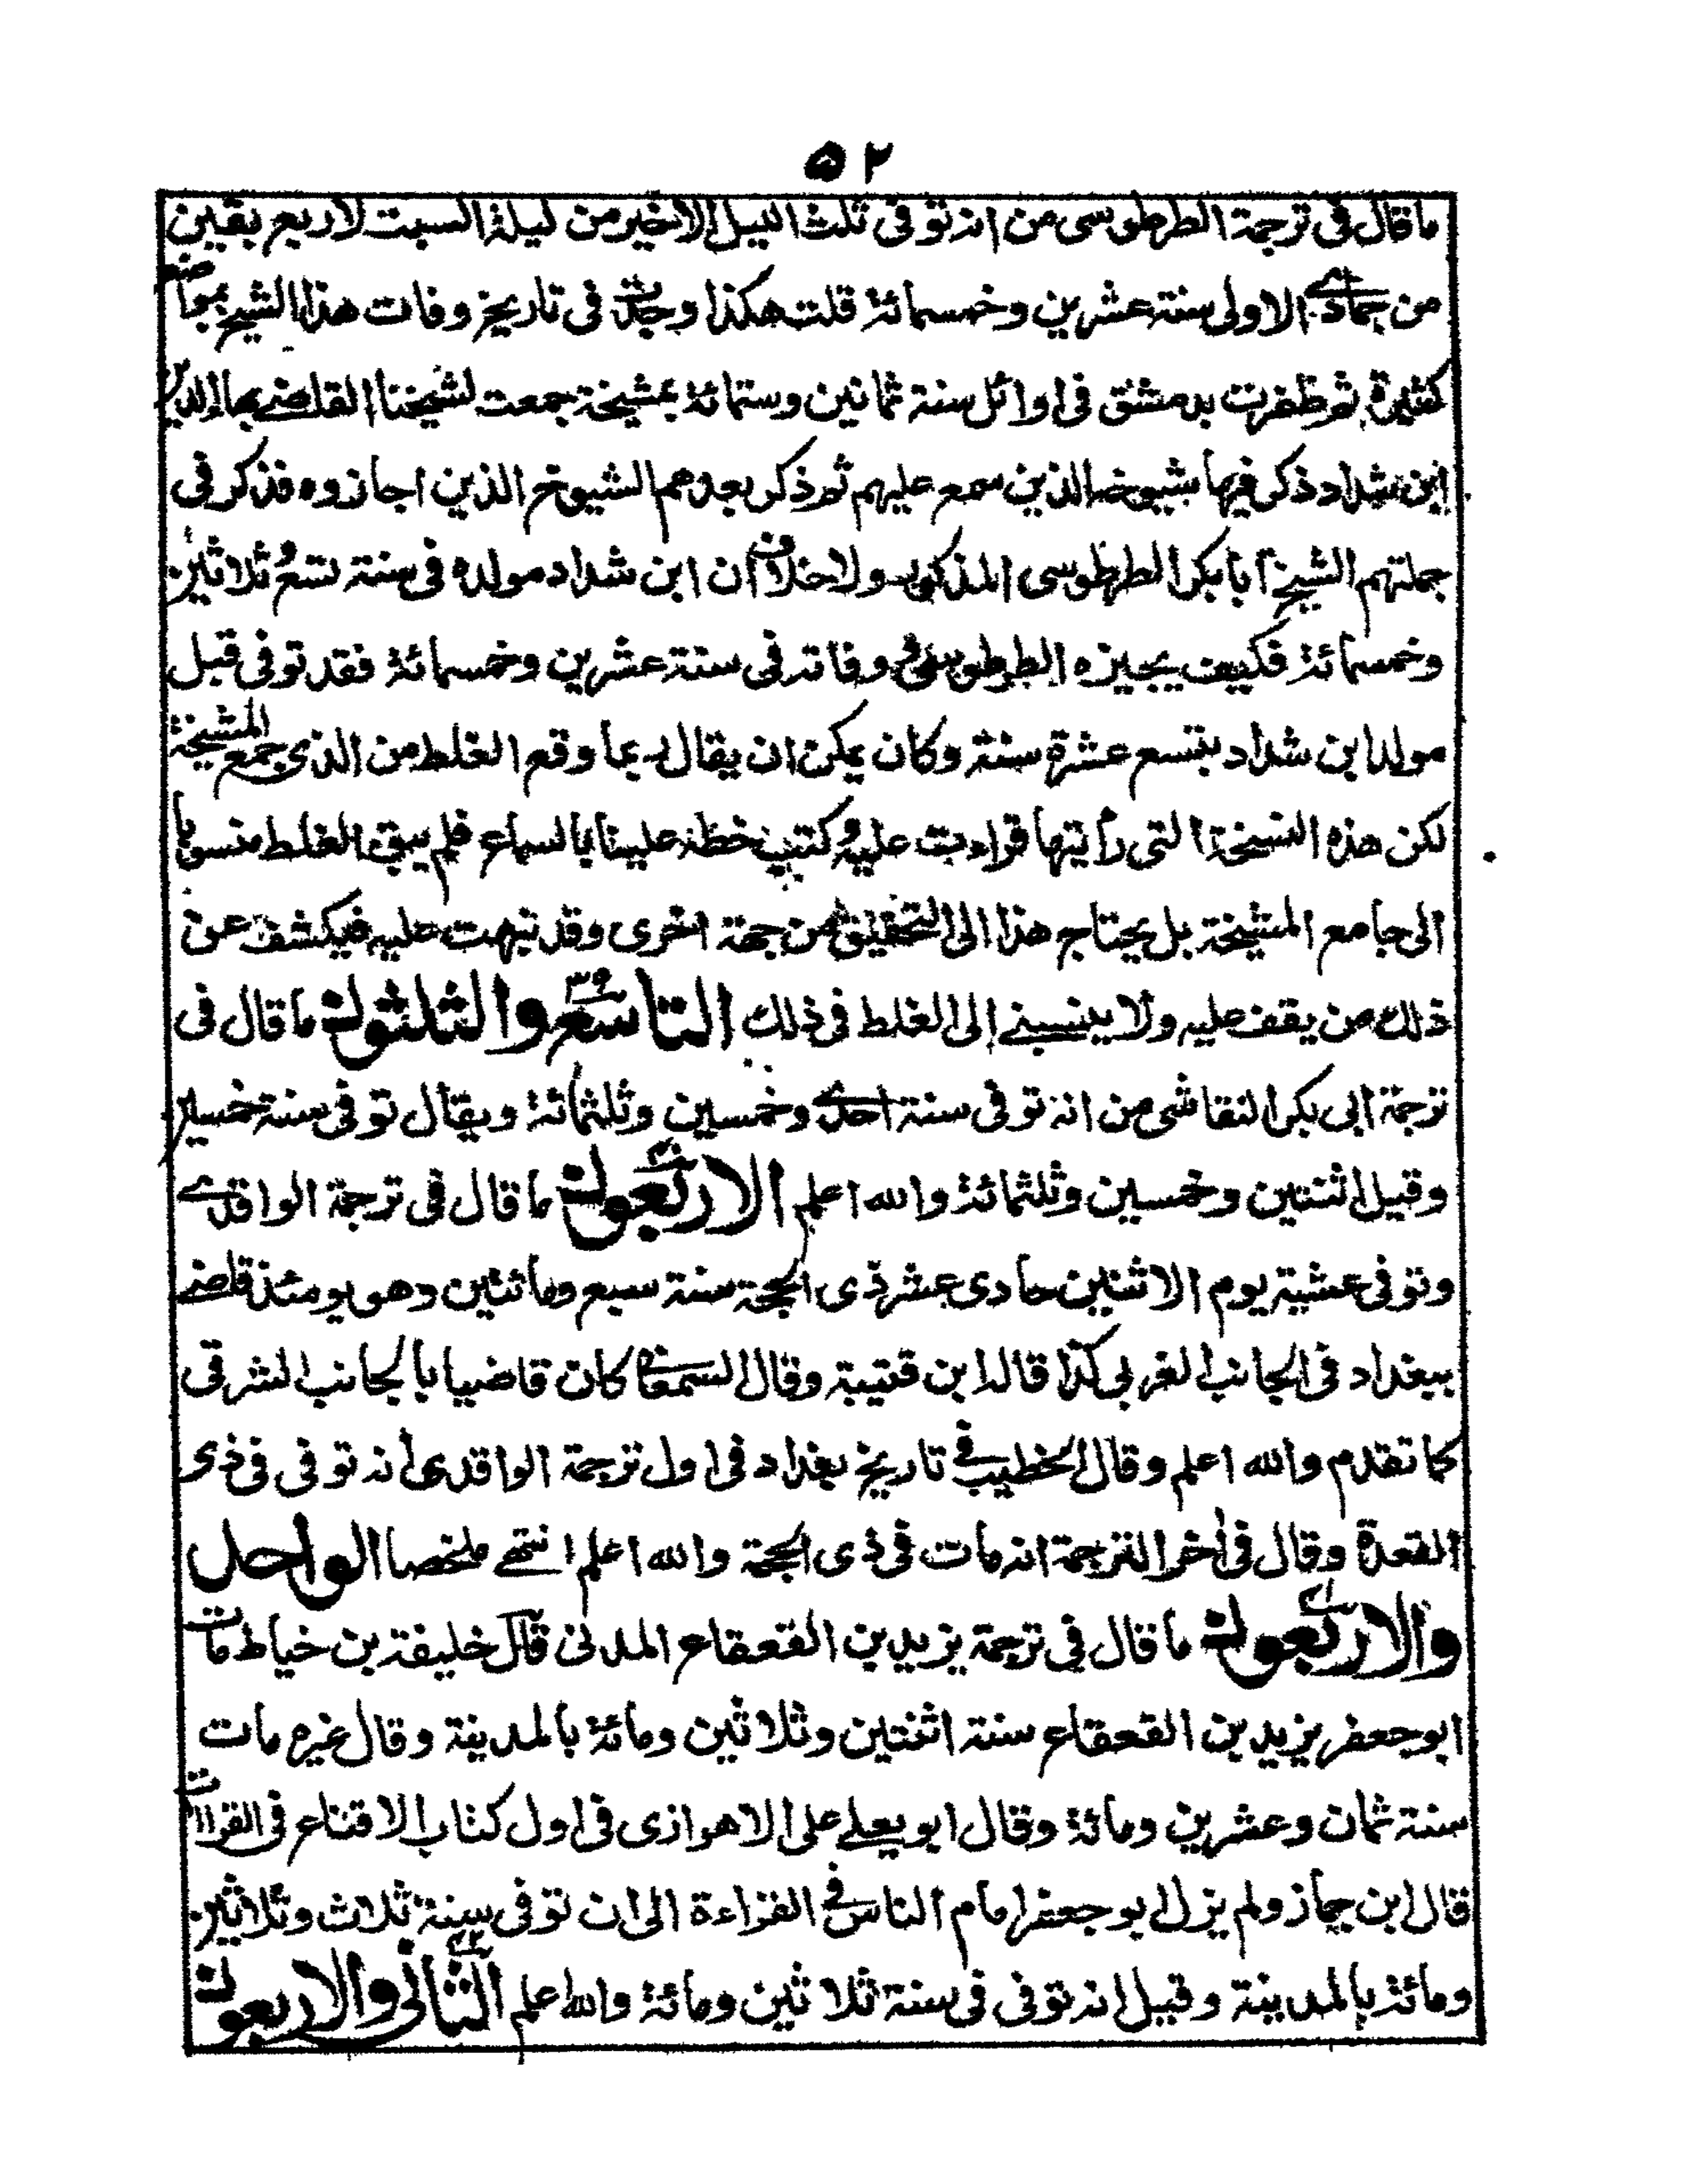 ٥٢
ما قال فى ترجمة الطرطوسى من انه توفى ثلث الليل الاخير من ليلة السبت لاربع بقين
من جمادے الاولى سنة عشرين وخمسمائة قلت هكذا وجدت فى تاريخ وفات هذا الشيخ بمواضع
كثيرة ثم ظفرت بدمشق فى اوائل سنة ثمانين وستمائة بمشيخة جمعت لشيخنا القاضے بهاء الدين
ابن شداد ذكر فيها شيوخه الذين سمع عليهم ثم ذكر بعدهم الشيوخ الذين اجازوه فذكر فى
جملتهم الشيخ أبا بكر الطرطوسى المذكور ولا خلاف ان ابن شداد مولده فى سنة تسع وثلاثين
وخمسمائة فكيف يجيزه الطرطوسى و وفاته فى سنة عشرين وخمسمائة فقد توفى قبل
مولد ابن شداد بتسع عشرة سنة وكان يمكن ان يقال ربما وقع الغلط من الذى جمع المشيخة
لكن هذه النسخة التى رأيتها قراءت عليه وكتب خطه علينا بالسماع فلم يبق الغلط منسوبا
الى جامع المشيخة بل يحتاج هذا الى التحقيق من جهة اخرى وقد نبهت عليه فيكشف عن
ذلك من يقف عليه ولا ينسبنے الى الغلط فى ذلك التاسع والثلثون ٣٩ ما قال فى
ترجمة ابى بكر النقاش من انه توفى سنة احدے وخمسين وثلثمائة ويقال توفى سنة خمسين
وقيل اثنتين وخمسين وثلثمائة والله اعلم الاربعون ٤٠ ما قال فى ترجمة الواقدے
وتوفى عشية يوم الاثنين حادى عشر ذى الحجة سنة سبع ومائتين وهو يومئذ قاضے
ببغداد فى الجانب الغربى كذا قاله ابن قتيبة وقال السمعانے كان قاضيا بالجانب الشرقى
كما تقدم والله اعلم وقال الخطيب فے تاريخ بغداد فى اول ترجمة الواقدى أنه توفى فى ذى
القعدة وقال فى أخر الترجمة انه مات فى ذى الحجة والله اعلم انتهے ملخصا الواحد
والاربعون ٤١ ما قال فى ترجمة يزيد بن القعقاع المدنى قال خليفة بن خياط مات
ابو جعفر يزيد بن القعقاع سنة اثنتين وثلاثين ومائة بالمدينة وقال غيره مات
سنة ثمان وعشرين ومائة وقال ابو يعلے على الاهوازى فى اول كتاب الاقناع فى القراات
قال ابن جماز ولم يزل ابو جعفر امام الناس فے القراءة الى ان توفى سنة ثلاث وثلاثين
ومائة بالمدينة وقيل انه توفى فى سنة ثلاثين ومائة والله اعلم الثانى والاربعون ٤٢